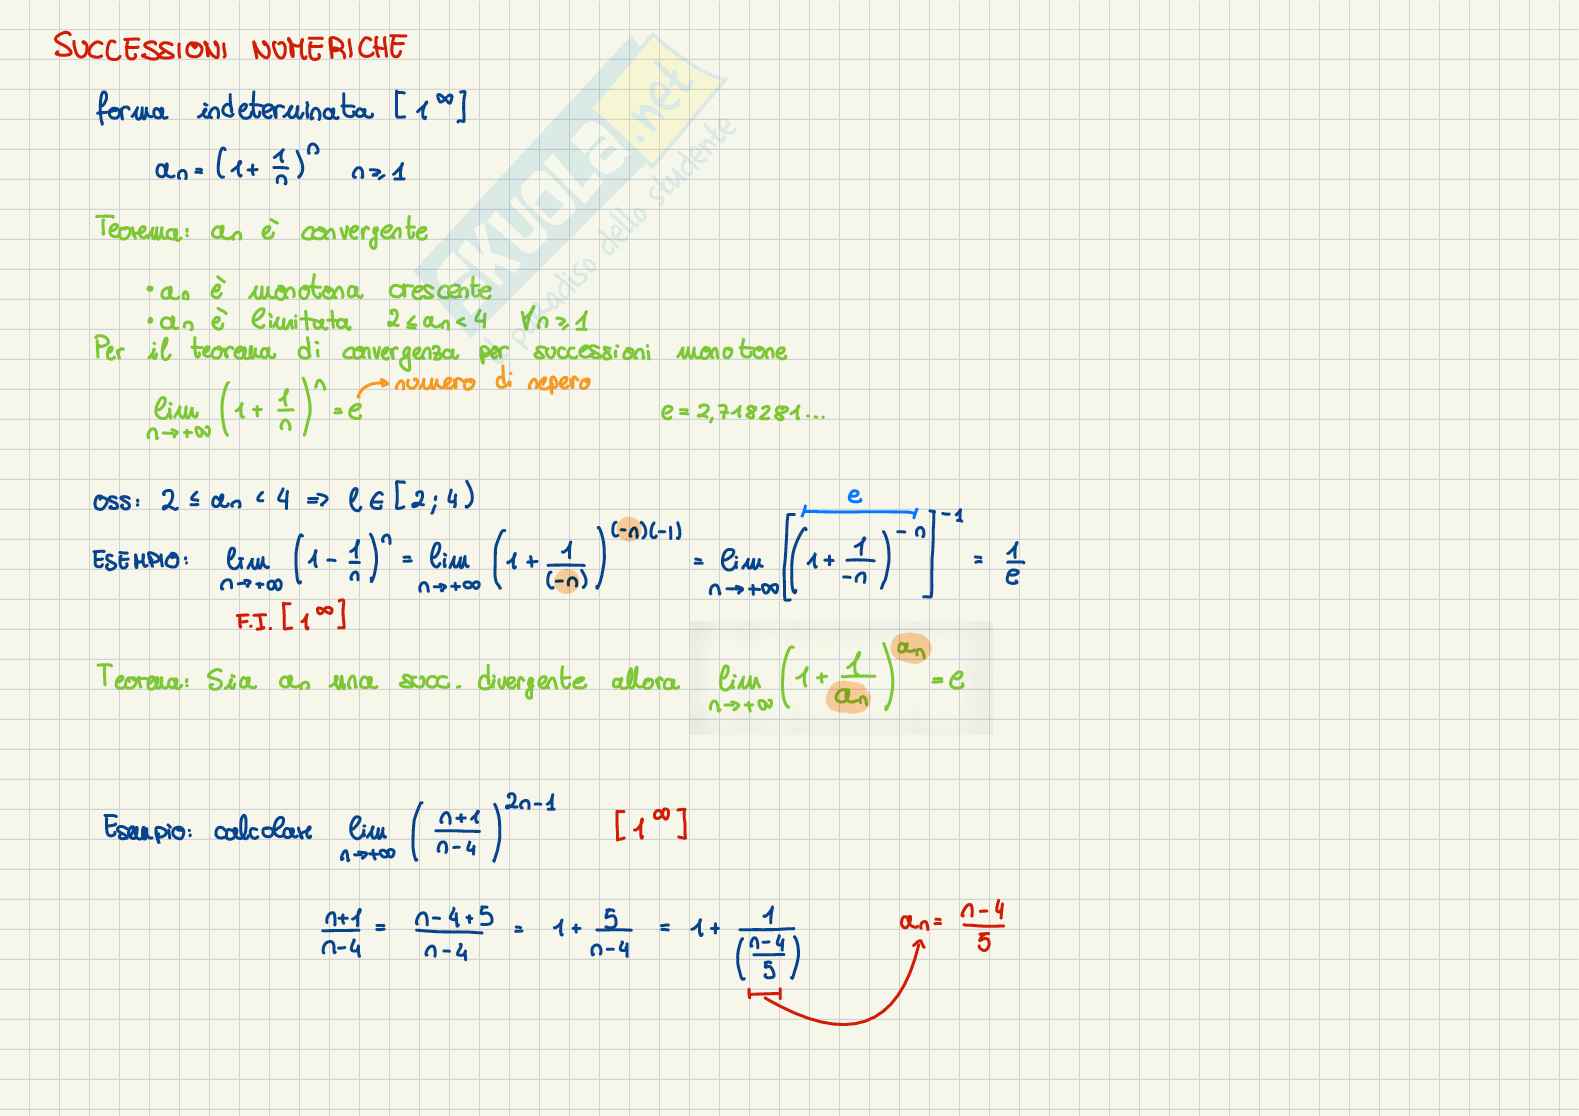 SUCCESSIONI NUMERICHE
forma indeterminata [1^∞]
an = (1 + 1/n)^n   n ≥ 1
Teorema: an è convergente
• an è monotona crescente
• an è limitata 2 ≤ an < 4 ∀n ≥ 1
Per il teorema di convergenza per successioni monotone
lim n→+∞ (1 + 1/n)^n = e → numero di nepero   e = 2,718281...
OSS: 2 ≤ an < 4 => l ∈ [2; 4)
ESEMPIO: lim n→+∞ (1 - 1/n)^n = lim n→+∞ (1 + 1/(-n))^(-n)(-1) = lim n→+∞ [(1 + 1/-n)^-n]^-1 = 1/e
e
F.I. [1^∞]
Teorema: Sia an una succ. divergente allora lim n→+∞ (1 + 1/an)^an = e
Esempio: calcolare lim n→+∞ ((n+1)/(n-4))^2n-1   [1^∞]
(n+1)/(n-4) = (n-4+5)/(n-4) = 1 + 5/(n-4) = 1 + 1/((n-4)/5)   an = (n-4)/5
SKUOLA.net
il paradiso dello studente